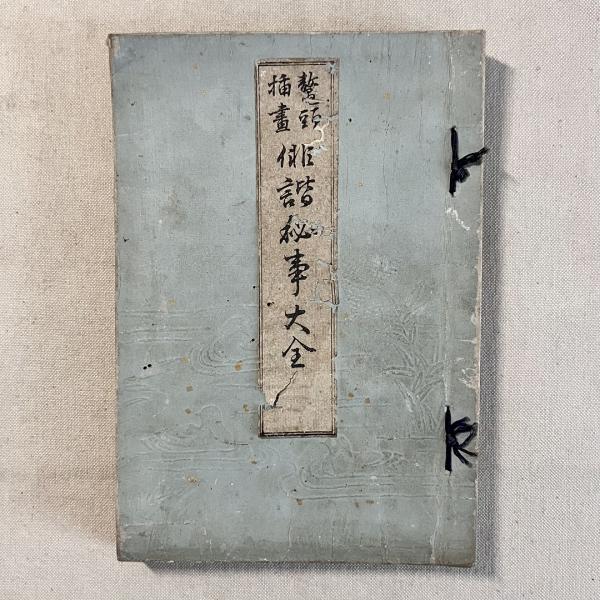 鼇頭
插畫
俳諧秘事大全